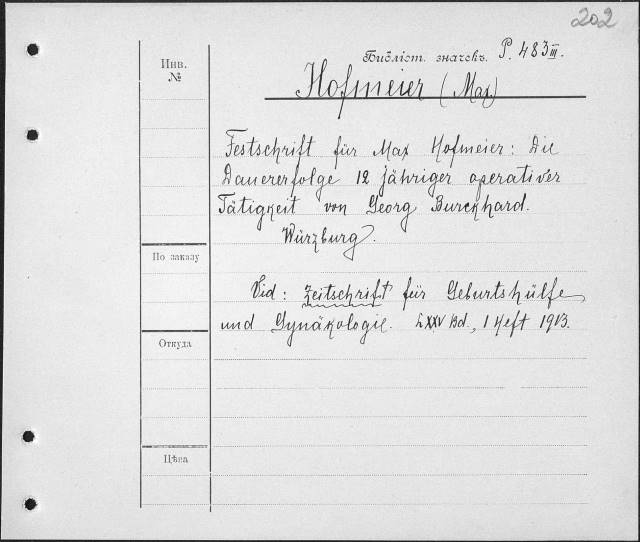 202
Инв.
№
Библіот. значекъ. P. 483 III.
Hofmeier (Max)
Festschrift für Max Hofmeier: Die
Dauererfolge 12 jähriger operativer
Tätigkeit von Georg Burckhard.
Würzburg.
По заказу
Vid: Zeitschrift für Geburtshülfe
und Gynäkologie. LXXV Bd., 1 Heft 1913.
Откуда
Цѣна